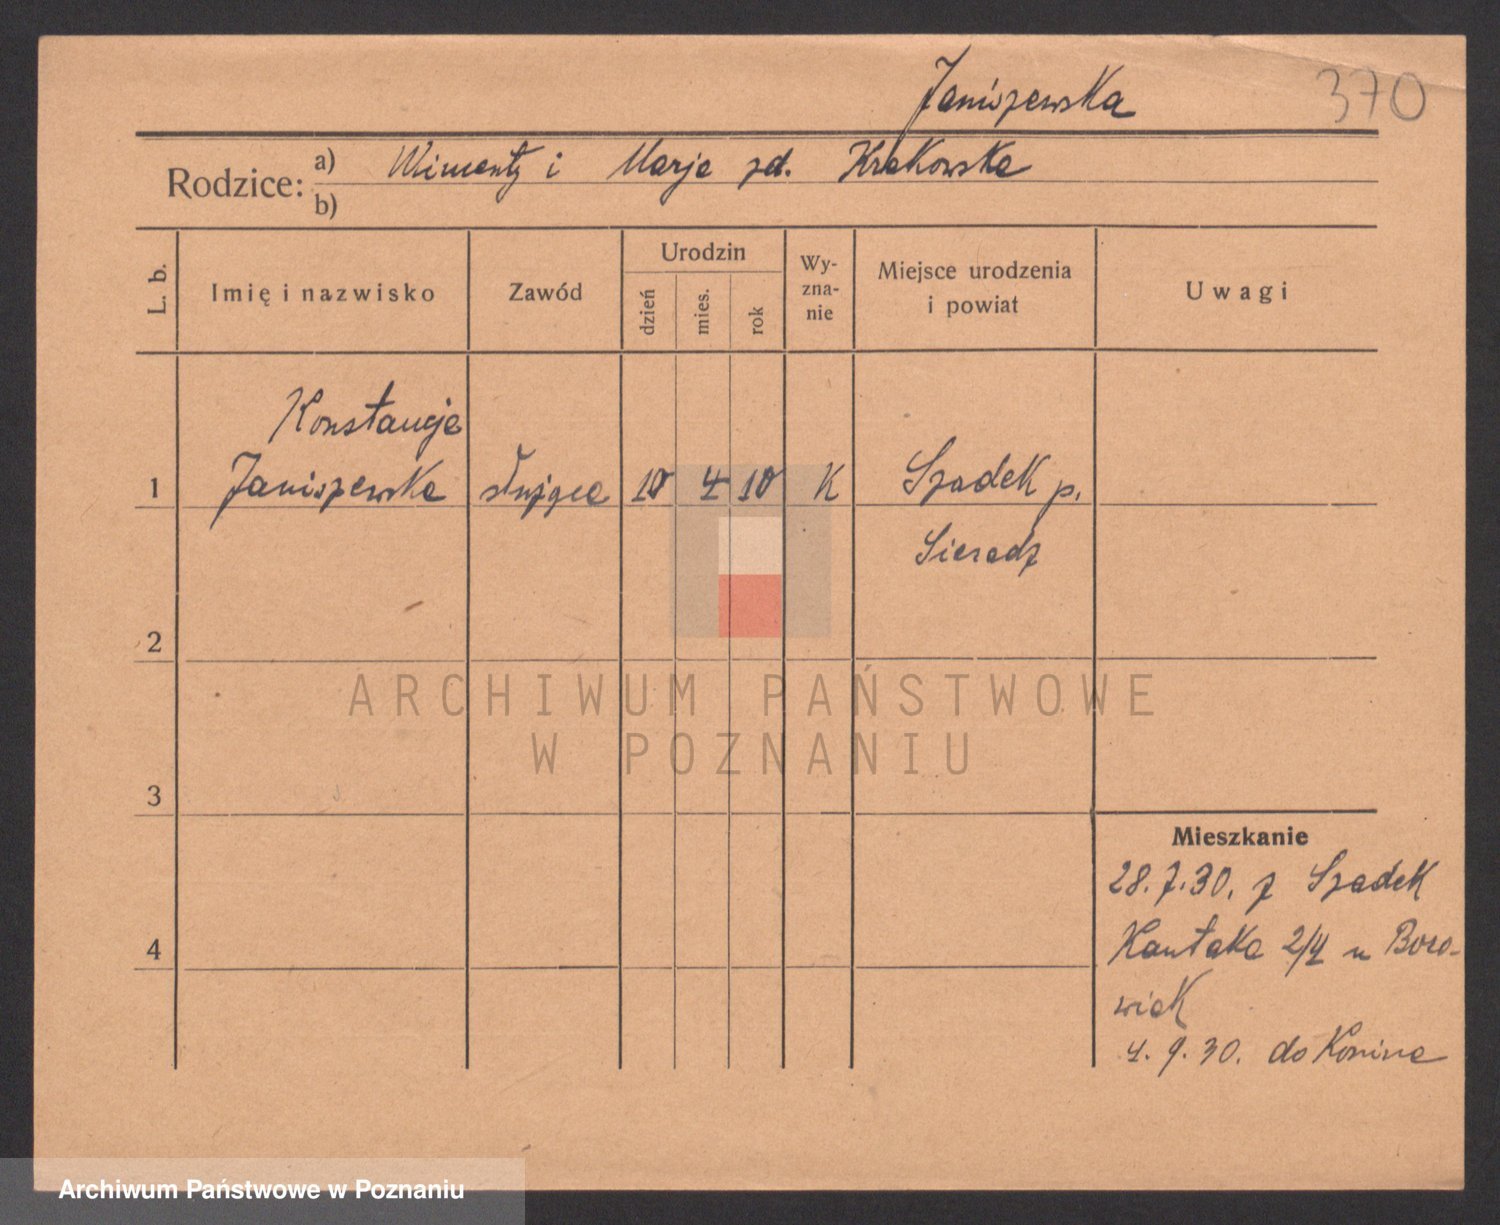 Janiszewska
370
Rodzice: a) i Marja zd. Krakowska
b)
L. b.
Imię i nazwisko
Zawód
Urodzin
dzień
mies.
rok
Wy-
zna-
nie
Miejsce urodzenia
i powiat
Uwagi
Konstancja
1 Janiszewska służąca 10 4 10 K Szadek p.
Sieradz
2
3
4
Mieszkanie
28.7.30. z Szadek
Kantaka 2/4 u Boro-
wiak
4. 9. 30. do Konina
ARCHIWUM PAŃSTWOWE
W POZNANIU
Archiwum Państwowe w Poznaniu